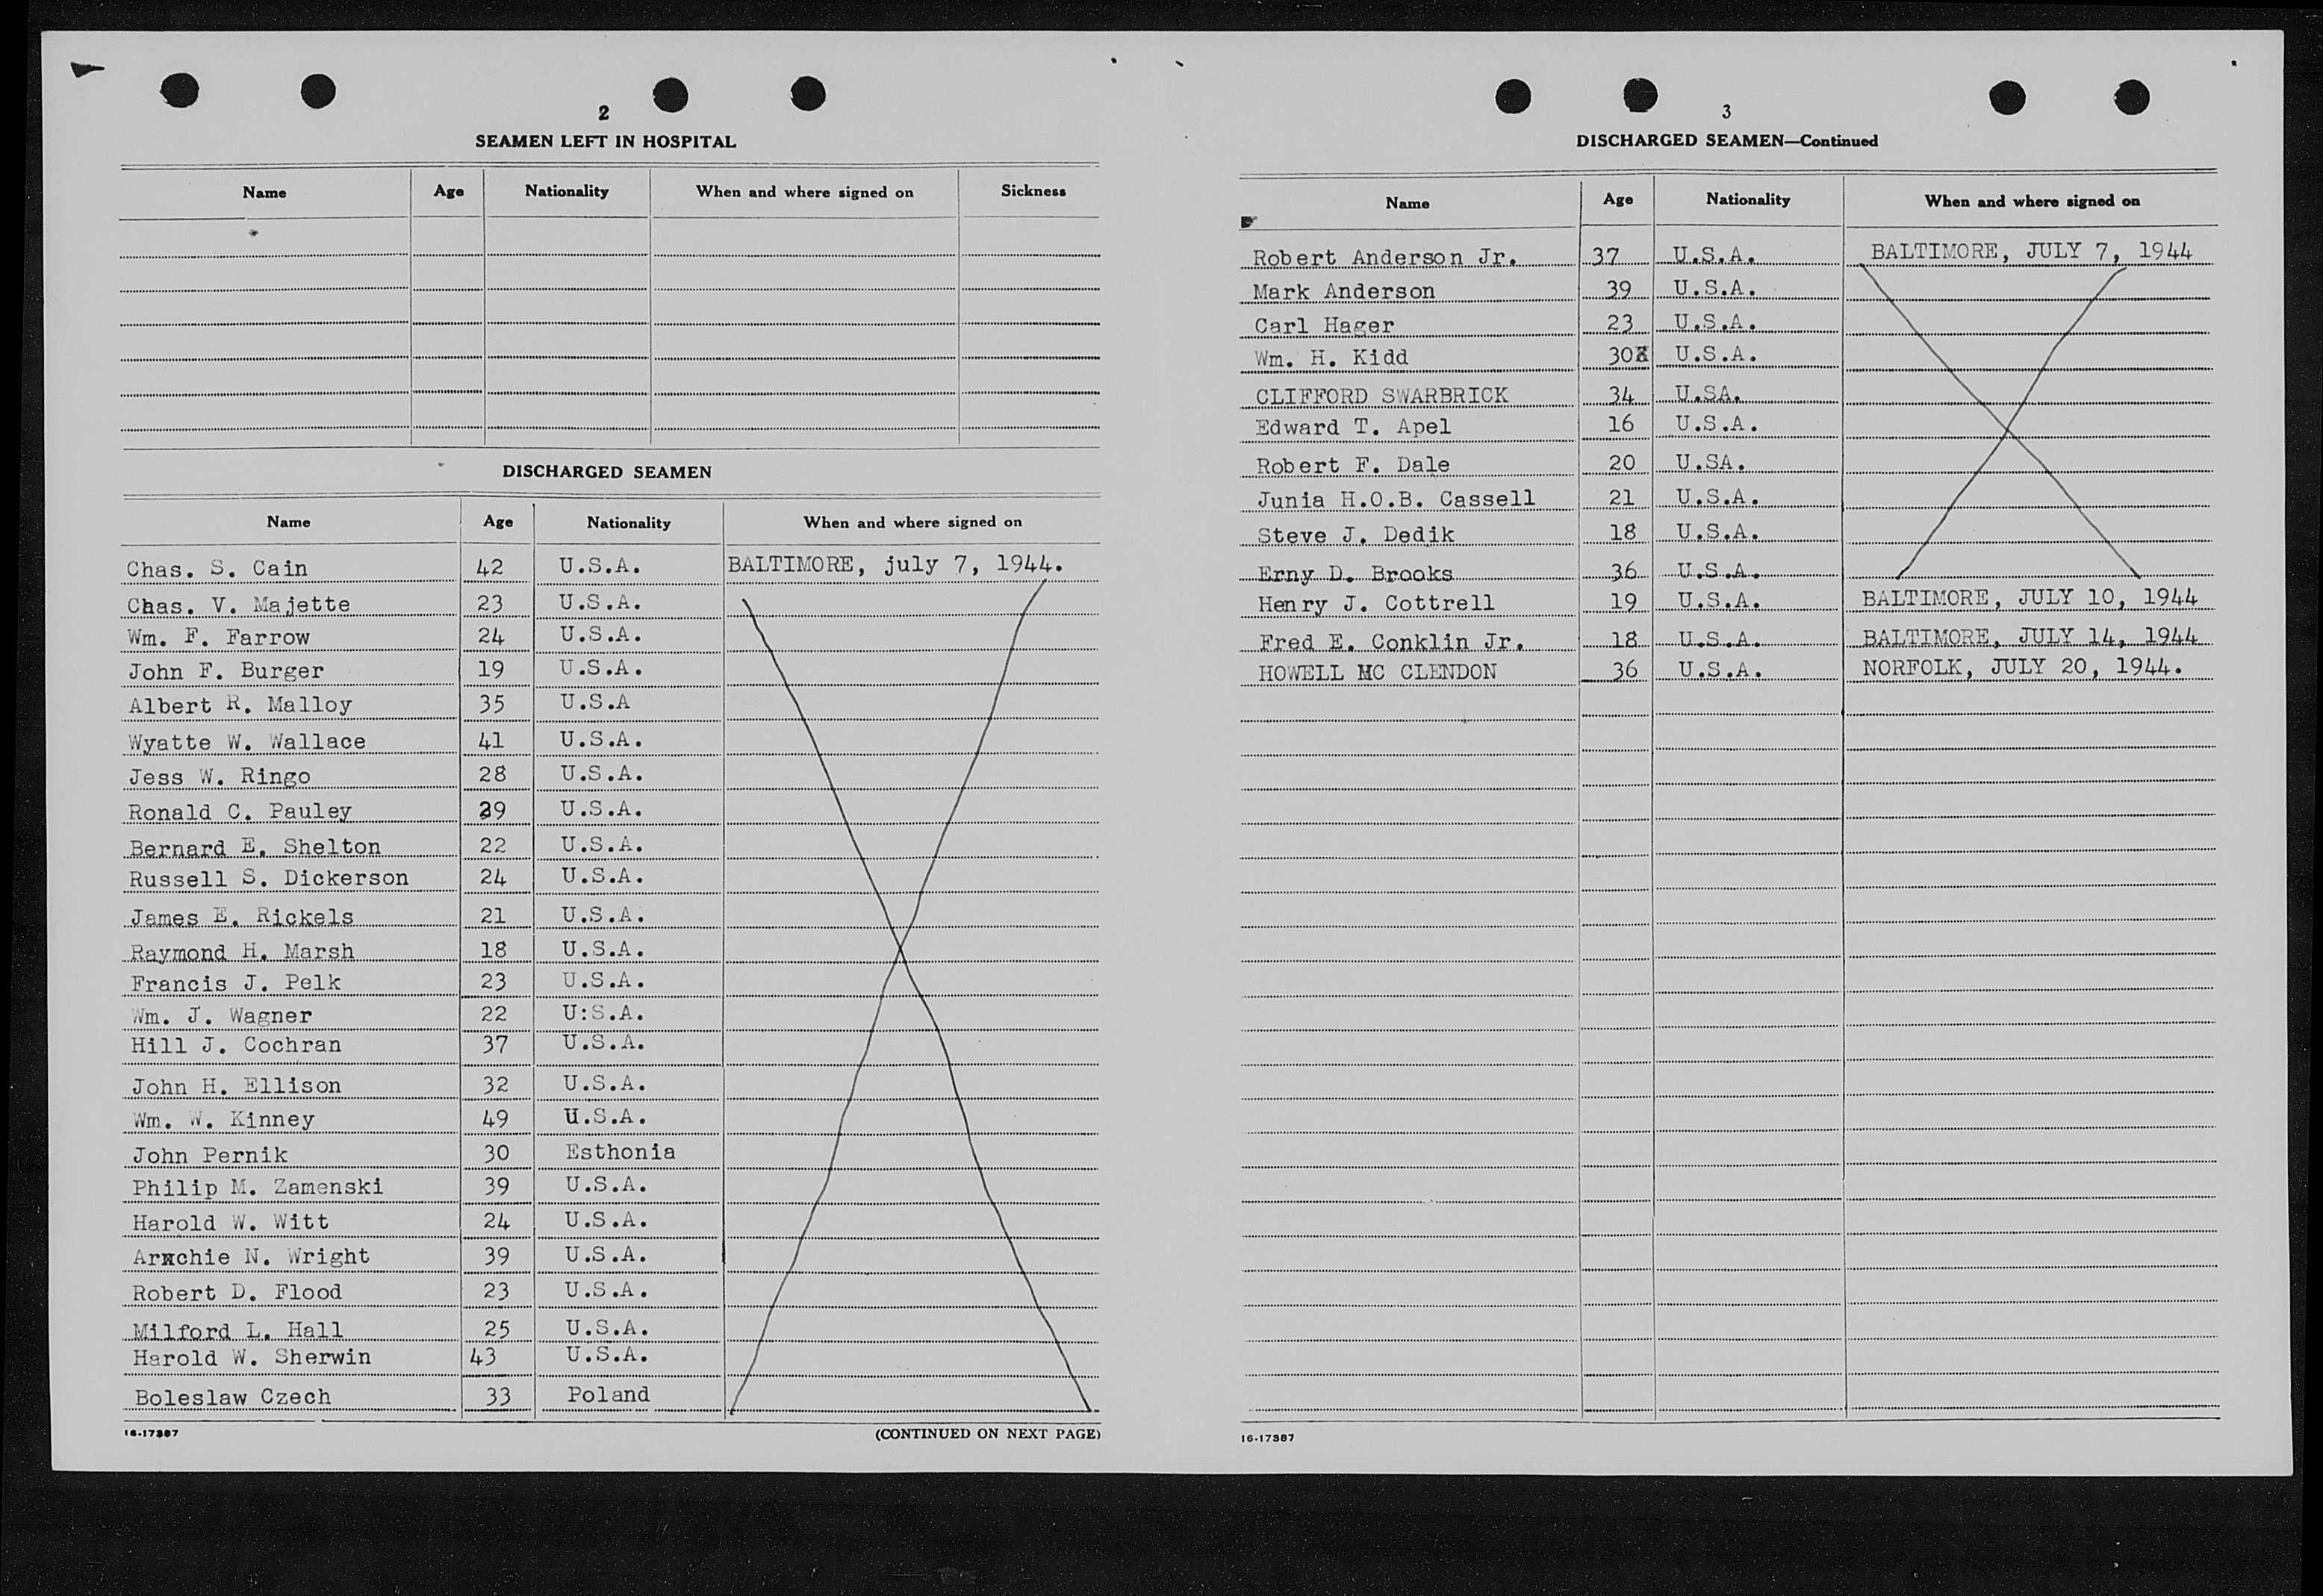 2
SEAMEN LEFT IN HOSPITAL
Name Age Nationality When and where signed on Sickness
DISCHARGED SEAMEN
Name Age Nationality When and where signed on
Chas. S. Cain 42 U.S.A. BALTIMORE, july 7, 1944.
Chas. V. Majette 23 U.S.A.
Wm. F. Farrow 24 U.S.A.
John F. Burger 19 U.S.A.
Albert R. Malloy 35 U.S.A
Wyatte W. Wallace 41 U.S.A.
Jess W. Ringo 28 U.S.A.
Ronald C. Pauley U.S.A.
Bernard E. Shelton 22 U.S.A.
Russell S. Dickerson 24 U.S.A.
James E. Rickels 21 U.S.A.
Raymond H. Marsh 18 U.S.A.
Francis J. Pelk 23 U.S.A.
Wm. J. Wagner 22 U:S.A.
Hill J. Cochran 37 U.S.A.
John H. Ellison 32 U.S.A.
Wm. W. Kinney 49 U.S.A.
John Pernik 30 Esthonia
Philip M. Zamenski 39 U.S.A.
Harold W. Witt 24 U.S.A.
Arxchie N. Wright 39 U.S.A.
Robert D. Flood 23 U.S.A.
Milford L. Hall 25 U.S.A.
Harold W. Sherwin 43 U.S.A.
Boleslaw Czech 33 Poland
16-17387 (CONTINUED ON NEXT PAGE)
3
DISCHARGED SEAMEN—Continued
Name Age Nationality When and where signed on
Robert Anderson Jr. 37 U.S.A. BALTIMORE, JULY 7, 1944
Mark Anderson 39 U.S.A.
Carl Hager 23 U.S.A.
Wm. H. Kidd 30 U.S.A.
CLIFFORD SWARBRICK 34 U.SA.
Edward T. Apel 16 U.S.A.
Robert F. Dale 20 U.SA.
Junia H.O.B. Cassell 21 U.S.A.
Steve J. Dedik 18 U.S.A.
Erny D. Brooks 36 U.S.A.
Henry J. Cottrell 19 U.S.A. BALTIMORE, JULY 10, 1944
Fred E. Conklin Jr. 18 U.S.A. BALTIMORE, JULY 14, 1944
HOWELL MC CLENDON 36 U.S.A. NORFOLK, JULY 20, 1944.
16-17387